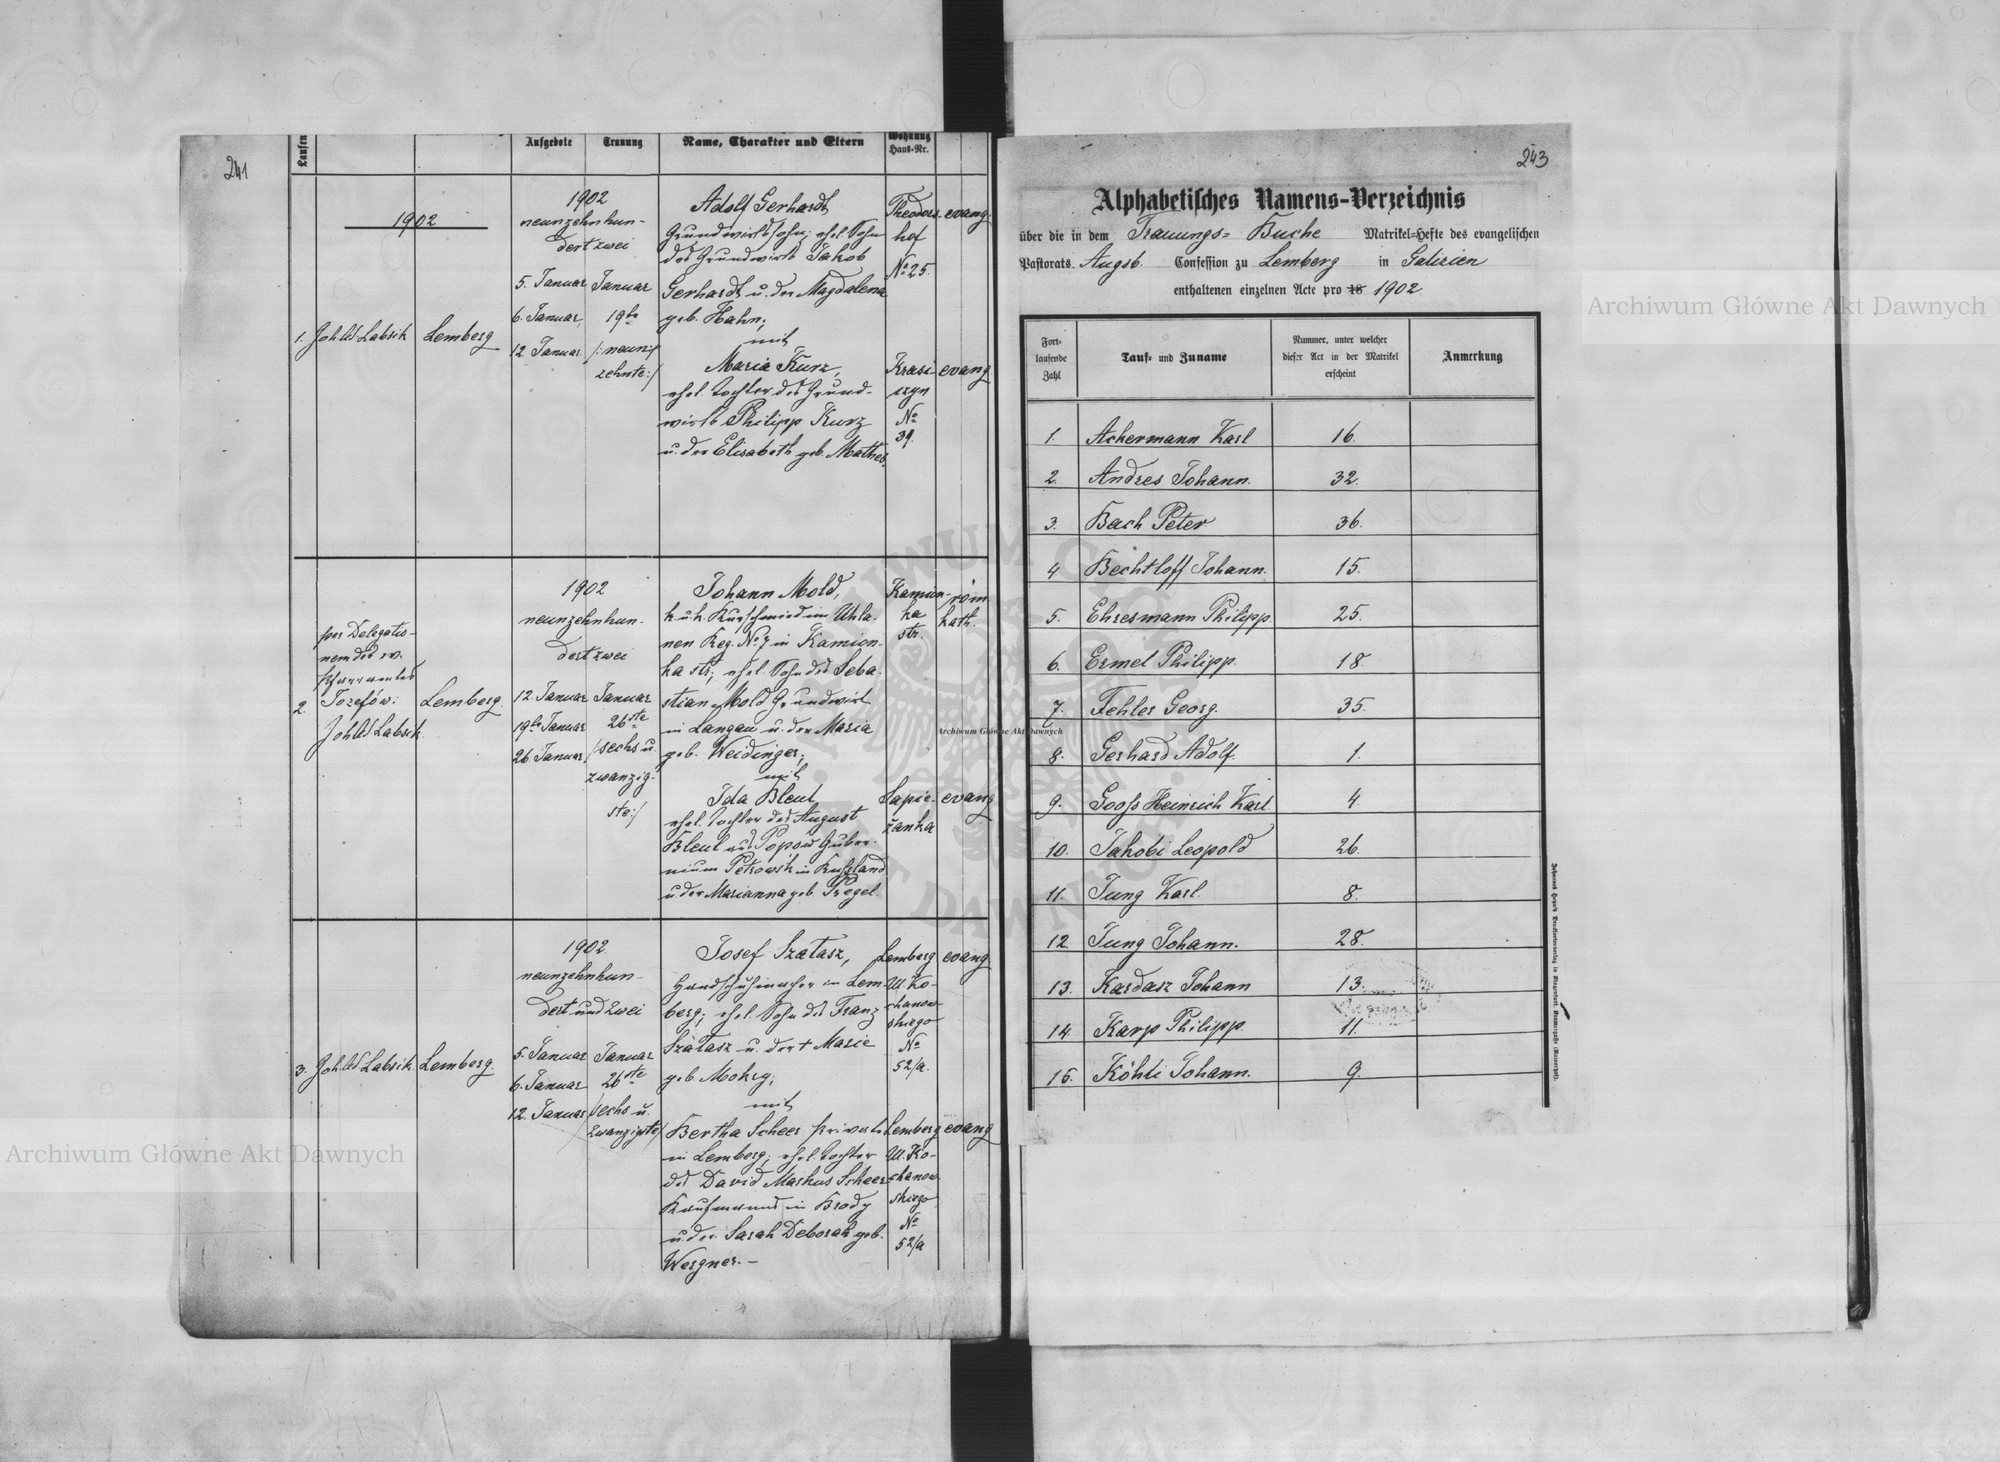 241
Laufen
Aufgebote
Trauung
Name, Charakter und Eltern
Wohnung
Haus-Nr.
1902
1.
Joh Ud Labsik
Lemberg
1902
neunzehnhun-
dert zwei
5. Januar
6. Januar,
12 Januar
Januar
19te
/:neun:/
zehnte:/
Adolf Gerhardt
Grundwirtssohn; ehel. Sohn
des Grundwirts Jakob
Gerhardt u. der Magdalena
geb. Hahn;
mit
Maria Kurz,
ehel. Tochter des Grund-
wirts Philipp Kurz
u. der Elisabeth geb. Mathes,
Theodors-
hof
No 25.
evang.
Krasi-
czyn
No
39.
evang
2.
per Delegatio-
nem des
Pfarramtes
Josefów:
Joh Ud Labsik.
Lemberg.
1902
neunzehnhun-
dert zwei
12 Januar
19te Januar
26 Januar
Januar
26ste
/sechs u.
zwanzig-
ste:/
Johann Mold,
k. u. k. Kurschmied im Uhla-
nen Reg. No 7 in Kamion-
ka str., ehel. Sohn des Seba-
stian Mold Grundwirt
in Langau u. der Maria
geb. Weidinger;
mit
Ida Bleul
ehel. Tochter des August
Bleul aus Popow Guber-
nium Petrowsk in Rußland
u. der Marianna geb. Pregel.
Kamion-
ka
str.
röm
kath.
Sapie-
żanka
evang
3.
Joh. Ud Labsik.
Lemberg.
1902.
neunzehnhun-
dert und zwei
5. Januar
6. Januar
12. Januar
Januar
26ste
/sechs u.
zwanzigste/
Josef Szatasz,
Handschuhmacher in Lem-
berg; ehel. Sohn des Franz
Szatasz u. der + Marie
geb. Mokry;
mit
Bertha Scheer private
in Lemberg; ehel. Tochter
des David Markus Scheer
Kaufmanns in Brody
u. der Sarah Deborah geb.
Wergner. -
Lemberg
Ul. Ko-
chanow-
skiego
No
52/a.
evang
Lemberg
Ul. Ko-
chanow-
skiego
No
52/a
evang
243
Alphabetisches Namens-Verzeichnis
über die in dem Trauungs= Buche Matrikel-Hefte des evangelischen
Pastorats Augsb. Confession zu Lemberg in Galizien
enthaltenen einzelnen Acte pro 18 1902
Fort-
laufende
Zahl
Tauf- und Zuname
Nummer, unter welcher
dieser Act in der Matrikel
erscheint
Anmerkung
1. Achermann Karl 16.
2. Andres Johann. 32.
3. Bach Peter 36.
4. Bechtloff Johann. 15.
5. Ehresmann Philipp. 25.
6. Ermel Philipp. 18
7. Fehler Georg. 35.
8. Gerhard Adolf. 1.
9. Gooss Heinrich Karl. 4.
10. Jakobi Leopold 26.
11. Jung Karl. 8.
12. Jung Johann. 28.
13. Kardasz Johann 13.
14. Karp Philipp. 11.
15. Köhli Johann. 9.
Archiwum Główne Akt Dawnych
Archiwum Główne Akt Dawnych
Archiwum Główne Akt Dawnych